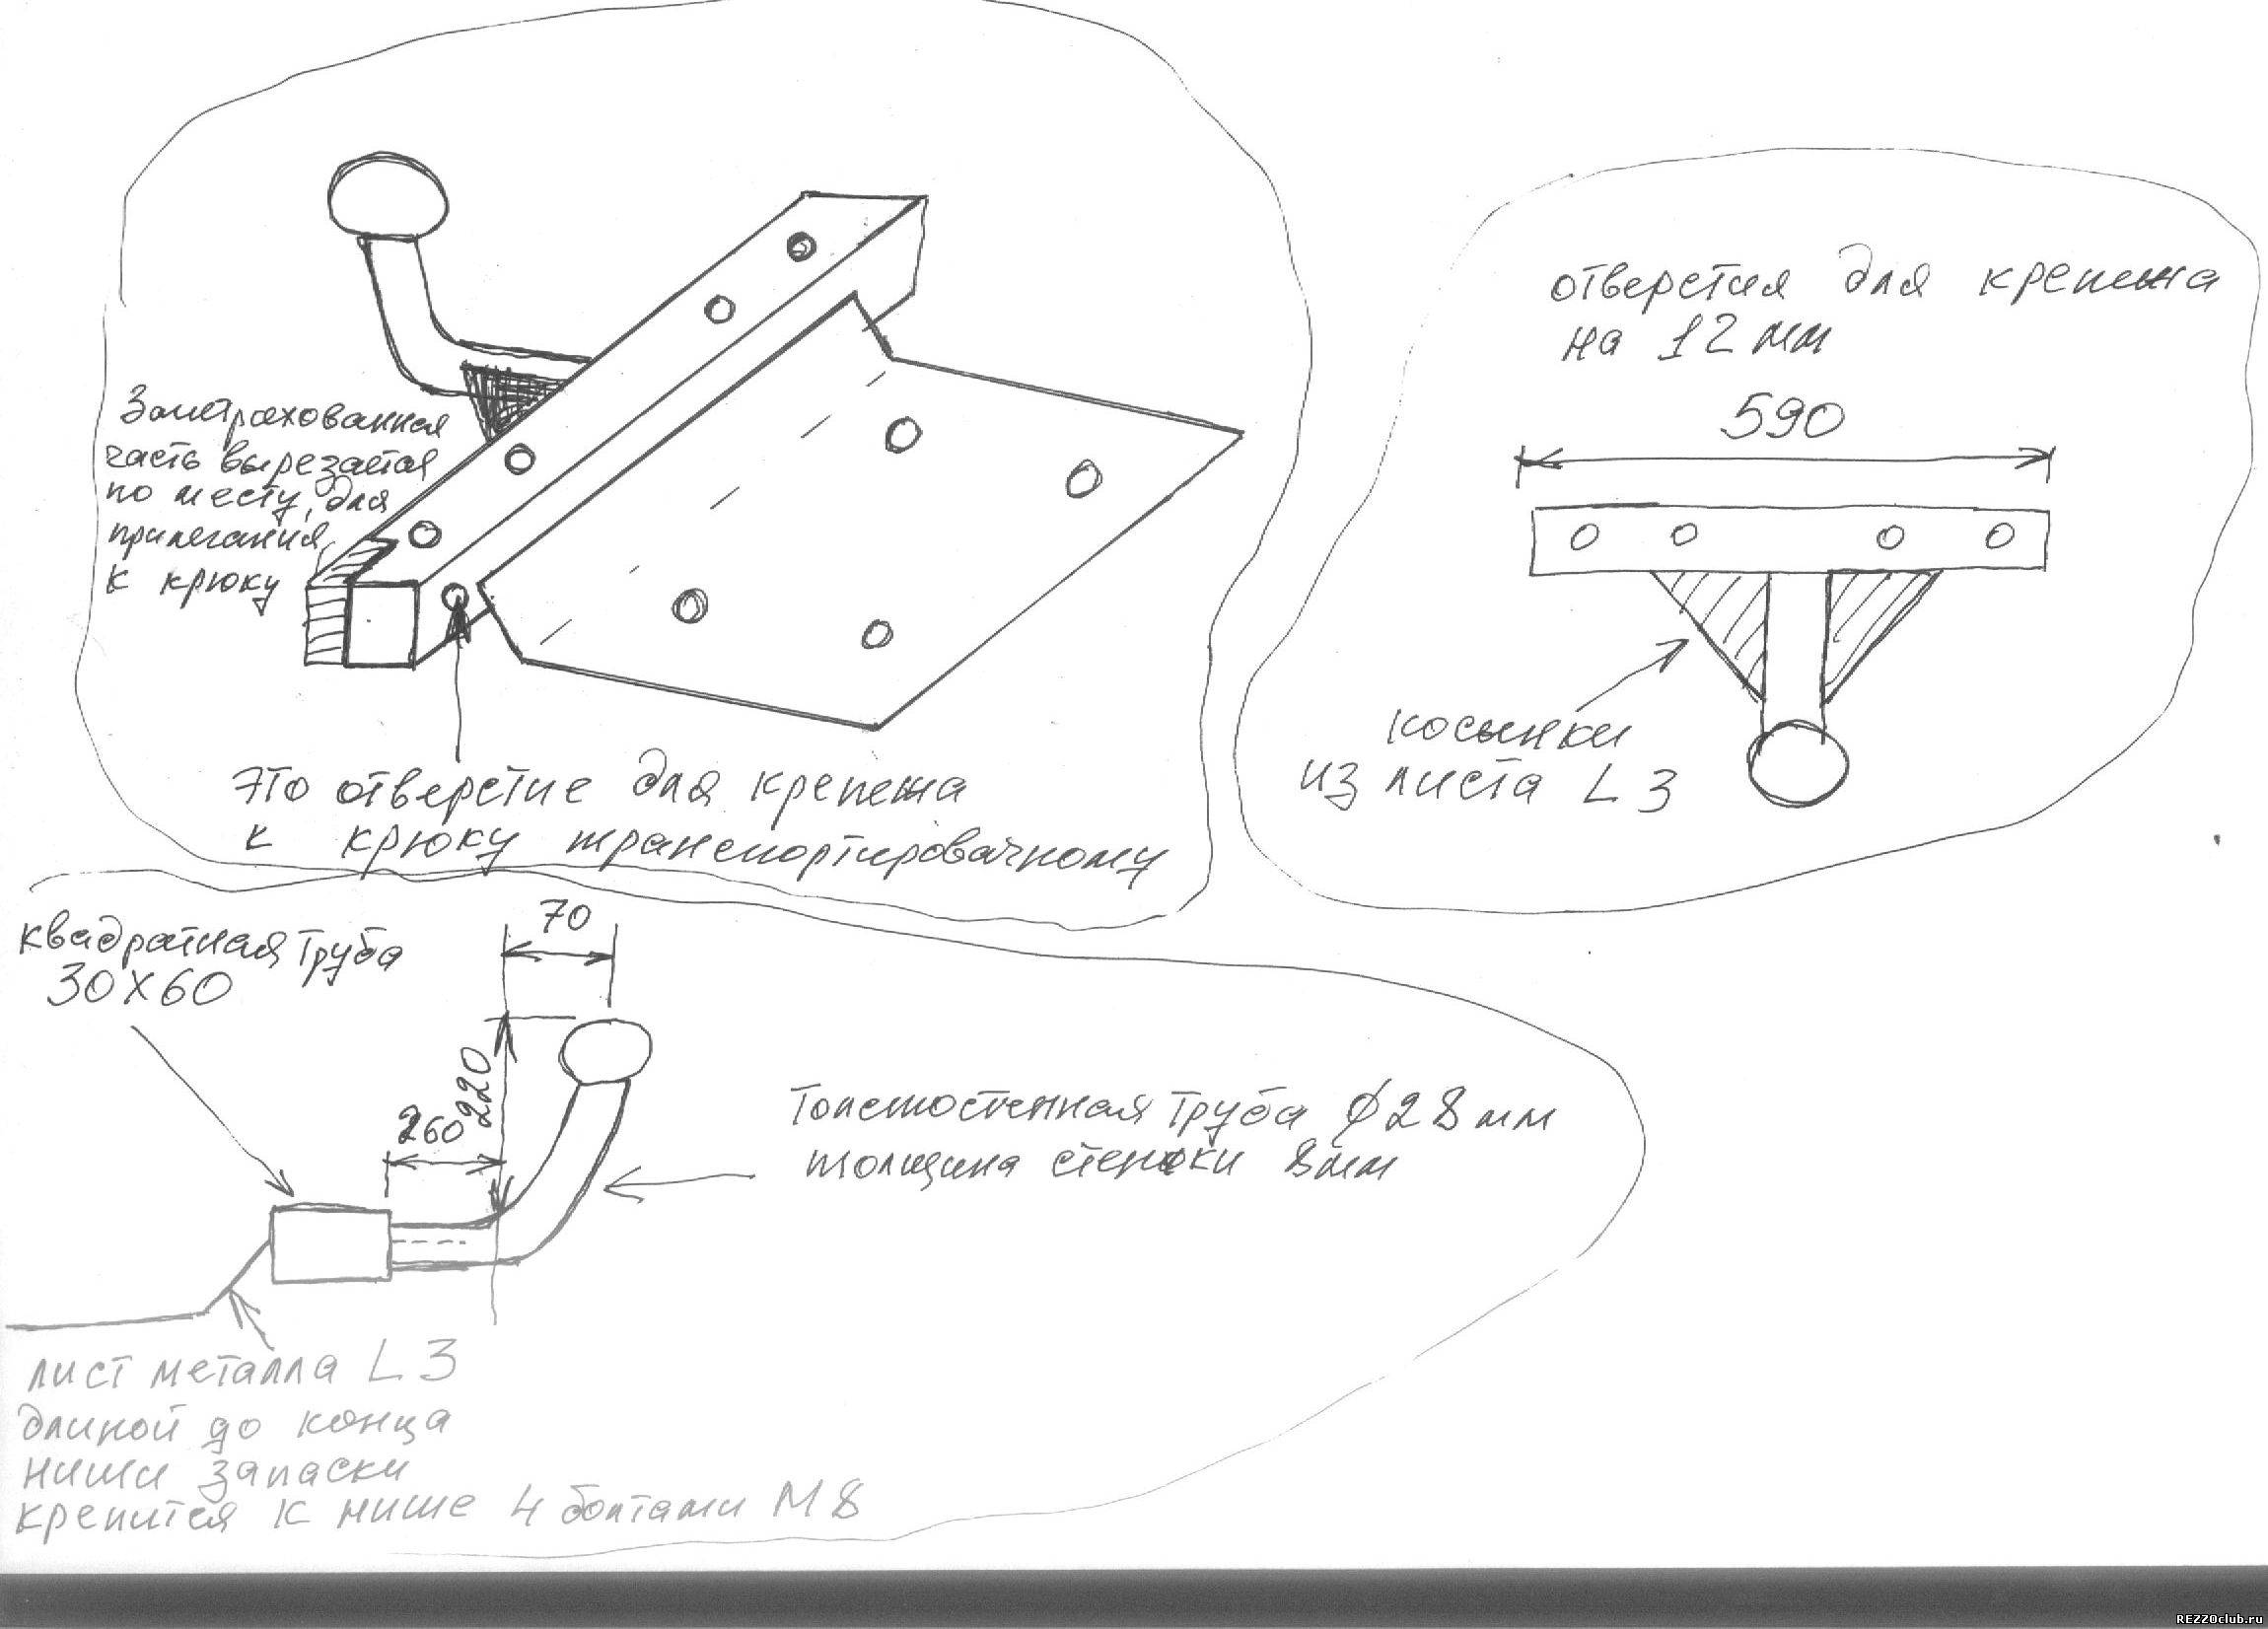 Заштрахованная
часть вырезается
по месту, для
прилегания
к крюку
это отверстие для крепежа
к крюку транспортировочному
отверстия для крепежа
на 12 мм
590
косынки
из листа L 3
квадратная труба
30X60
70
220
260
Толстостенная труба ϕ28 мм
толщина стенки 8мм
лист металла L 3
длиной до конца
ниши запаски
крепится к нише 4 болтами М8
REZZOclub.ru